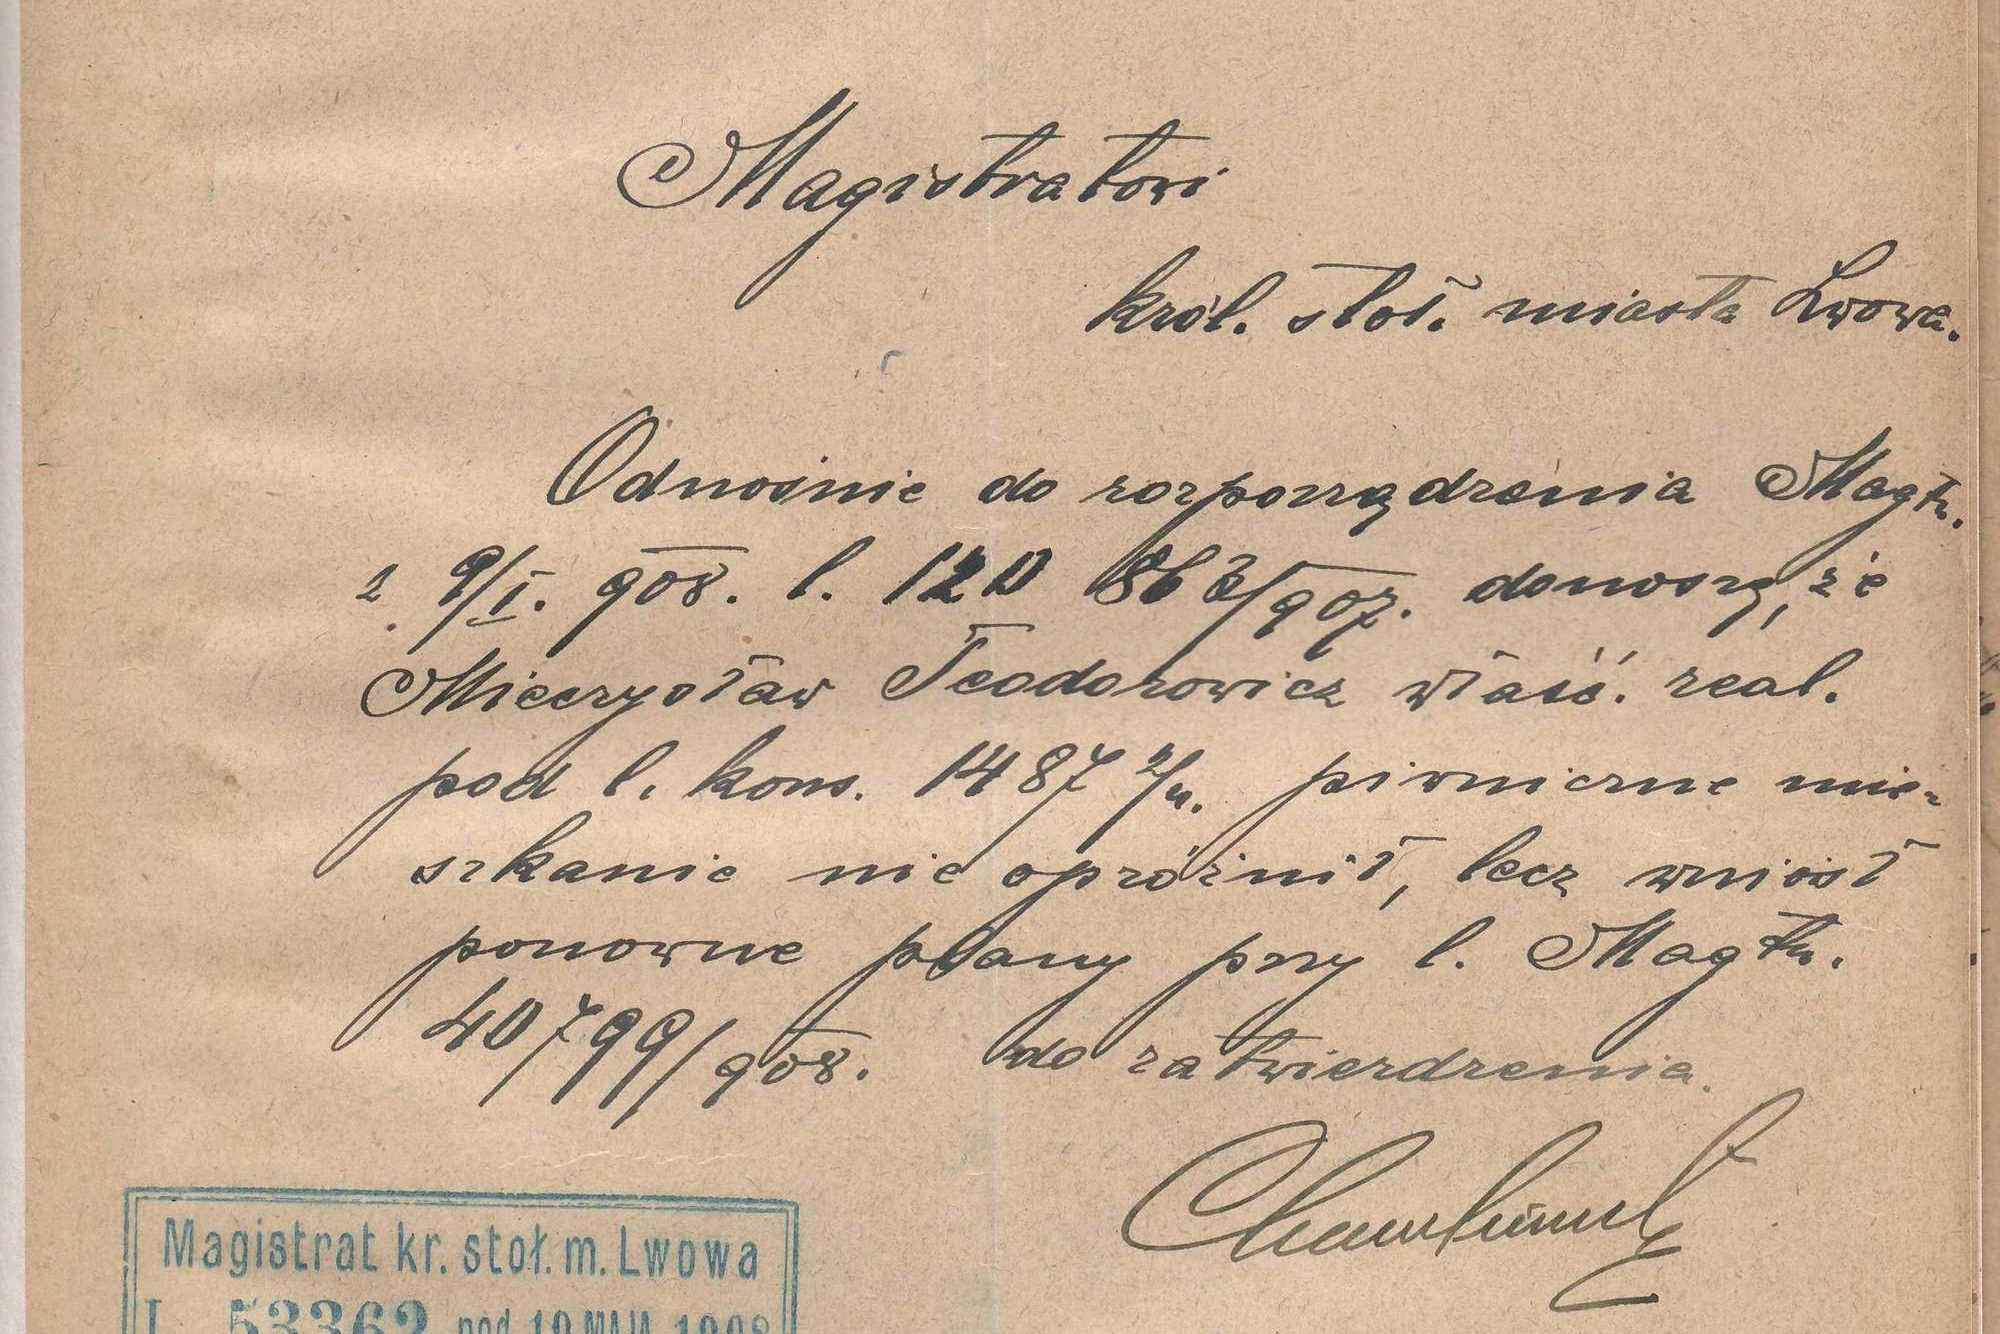 Magistratowi
król. stoł. miasta Lwowa.
Odnośnie do rozporządzenia Magtu.
z 9/I. 908. l. 120 863/907. donoszę, że
Mieczysław Teodorowicz właść. real.
pod l. kons. 1487 2/4. piwniczne mie-
szkanie nie opróżnił, lecz wniósł
ponowne plany przy l. Magtu.
40799/908. do zatwierdzenia.
Magistrat kr. stoł. m. Lwowa
L. 53362 pod 19 MAJA 1908